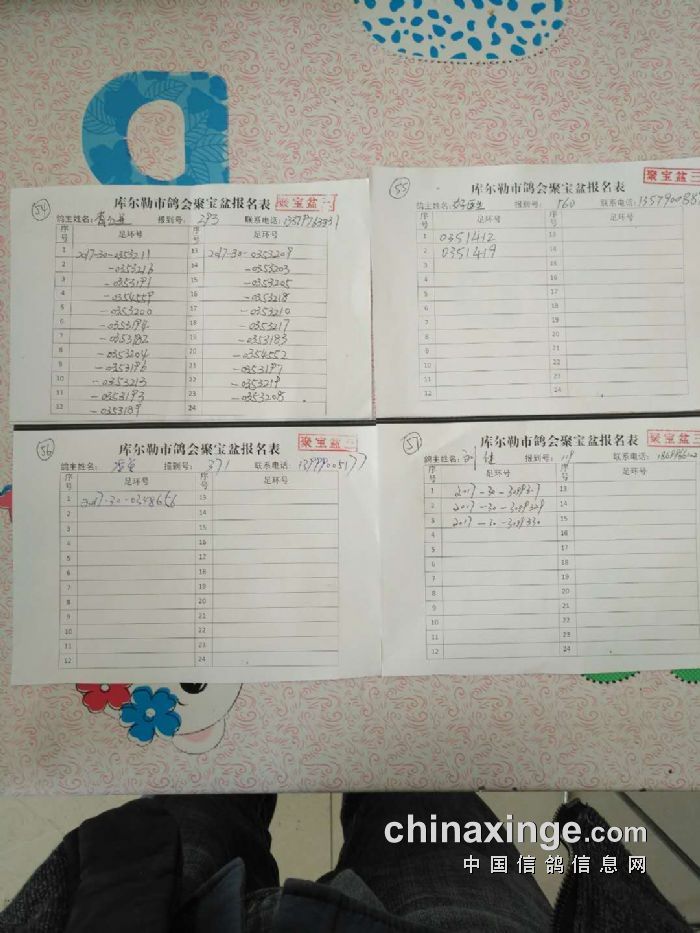 54
库尔勒市鸽会聚宝盆报名表
聚宝盆
鸽主姓名: 报到号: 293 联系电话:
序号 足环号 序号 足环号
1 2017-30-0353211 13 2017-30-0353209
2 -0353216 14 -0353203
3 -0353191 15 -0353205
4 -0354559 16 -0353218
5 -0353200 17 -0353210
6 -0353194 18 -0353217
7 -0353182 19 -0353183
8 -0353204 20 -0354552
9 -0353196 21 -0353197
10 -0353213 22 -0353219
11 -0353193 23 -0353208
12 -0353199 24
55
聚宝盆三
库尔勒市鸽会聚宝盆报名表
鸽主姓名: 报到号: 160 联系电话:
序号 足环号 序号 足环号
1 0351412 13
2 0351419 14
3 15
4 16
5 17
6 18
7 19
8 20
9 21
10 22
11 23
12 24
56
库尔勒市鸽会聚宝盆报名表
聚宝盆三
鸽主姓名: 报到号: 371 联系电话: 13999005177
序号 足环号 序号 足环号
1 2017-30-0348656 13
2 14
3 15
4 16
5 17
6 18
7 19
8 20
9 21
10 22
11 23
12 24
57
库尔勒市鸽会聚宝盆报名表
聚宝盆三
鸽主姓名: 报到号: 119 联系电话:
序号 足环号 序号 足环号
1 2017-30- 13
2 2017-30-3089329 14
3 2017-30-3089330 15
4 16
5 17
6 18
7 19
8 20
9 21
10 22
11 23
12 24
chinaxinge.com
中国信鸽信息网